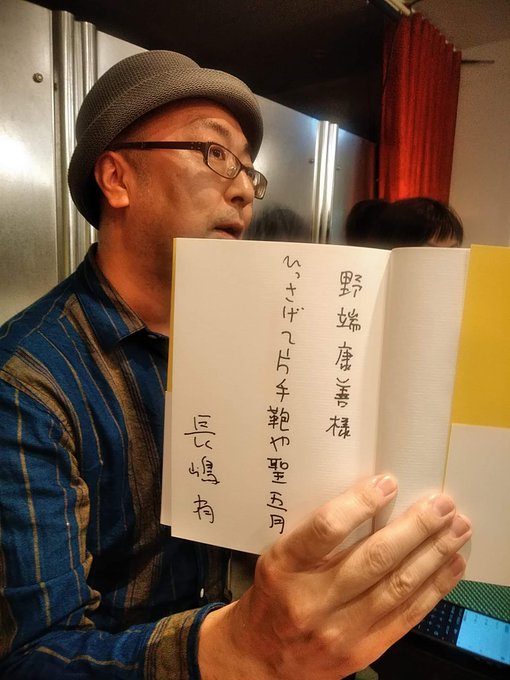 野端康善様
ひっさげて片手鞄や聖五月
長嶋有